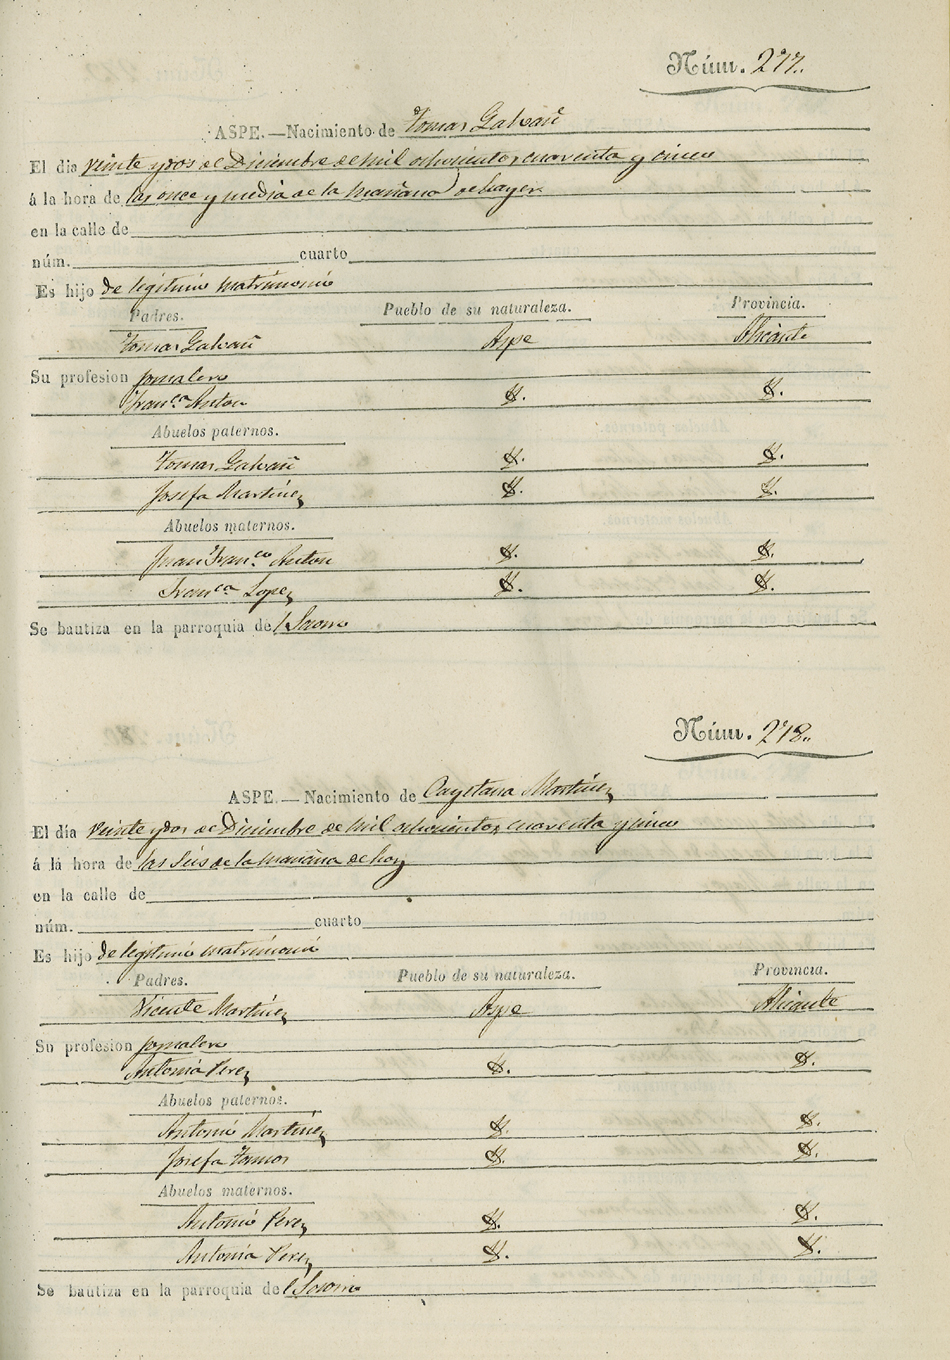 Núm. 277.
ASPE.—Nacimiento de Tomas Galvañ
El dia veinte y dos de Diciembre de mil ochocientos cuarenta y cinco
á la hora de las once y media de la mañana de hayer
en la calle de
núm. cuarto
Es hijo de legitimo matrimonio
Padres. Pueblo de su naturaleza. Provincia.
Tomas Galvañ Aspe Alicante
Su profesion jornalero
Fran.ca Anton Y. Y.
Abuelos paternos.
Tomas Galvañ Y. Y.
Josefa Martinez Y. Y.
Abuelos maternos.
Juan Fran.co Anton Y. Y.
Fran.ca Lopez Y. Y.
Se bautiza en la parroquia del Socorro
Núm. 278.
ASPE.—Nacimiento de Cayetana Martinez
El día veinte y dos de Diciembre de mil ochocientos cuarenta y cinco
á la hora de las seis de la mañana de hoy
en la calle de
núm. cuarto
Es hijo de legitimo matrimonio
Padres. Pueblo de su naturaleza. Provincia.
Vicente Martinez Aspe Alicante
Su profesion jornalero
Antonia Perez Y. Y.
Abuelos paternos.
Antonio Martinez Y. Y.
Josefa Tomas Y. Y.
Abuelos maternos.
Antonio Perez Y. Y.
Antonia Perez Y. Y.
Se bautiza en la parroquia del Socorro